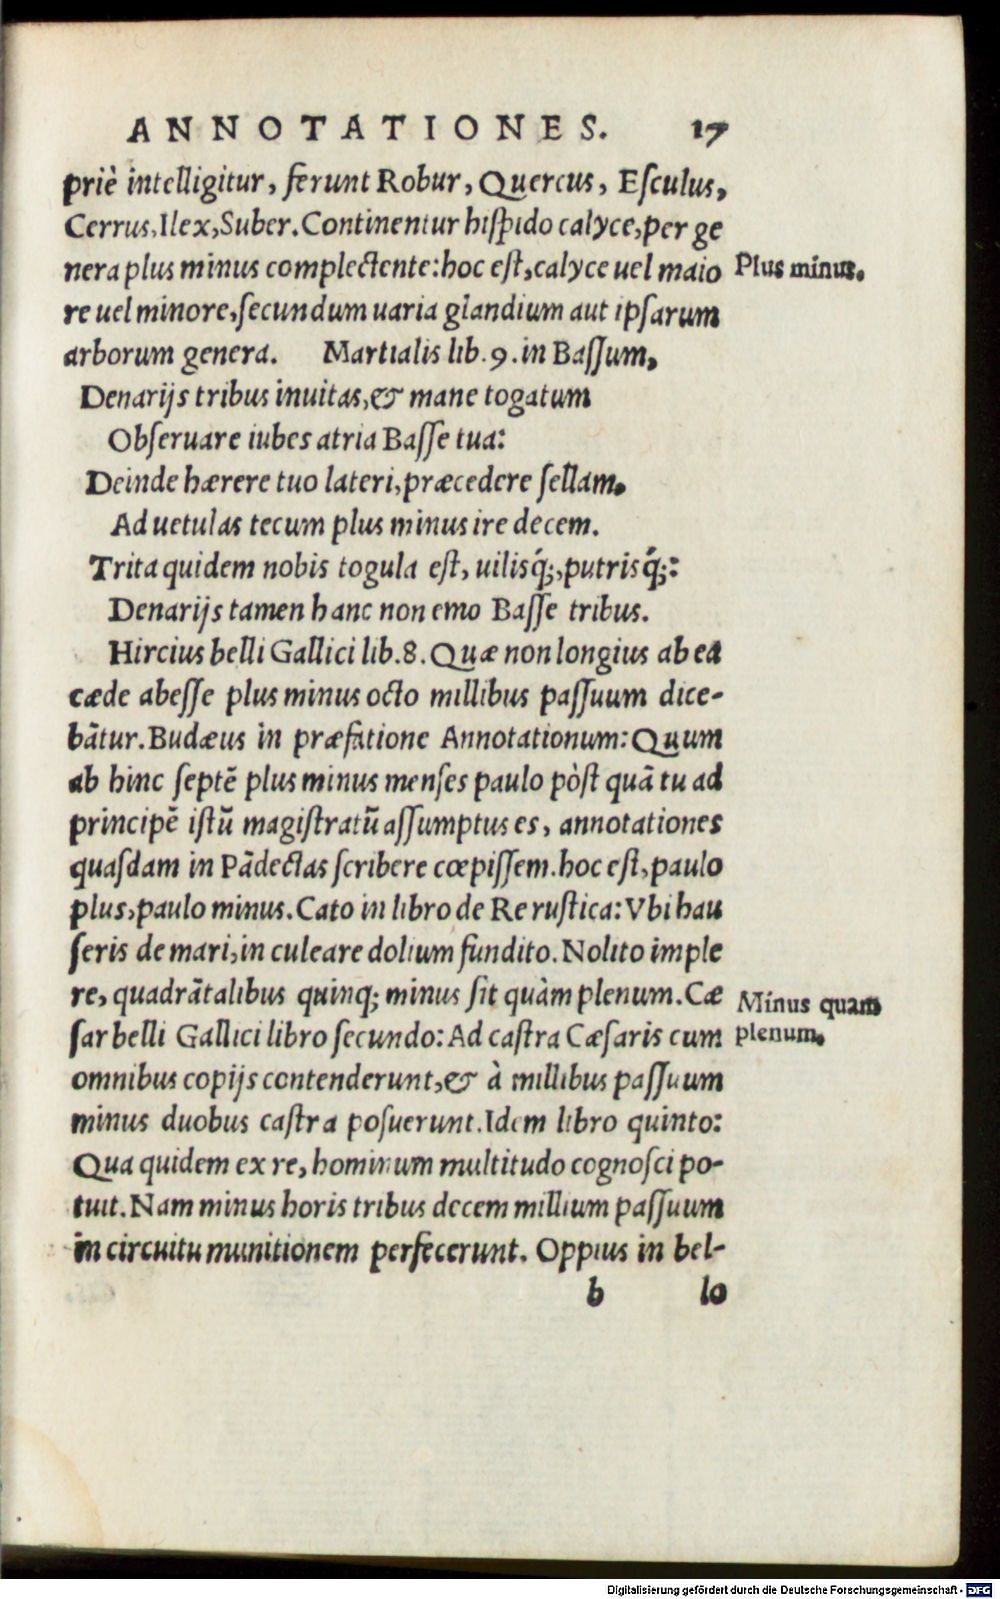 ANNOTATIONES. 17
priè intelligitur, ferunt Robur, Quercus, Esculus,
Cerrus, Ilex, Suber. Continentur hispido calyce, per ge
nera plus minus complectente: hoc est, calyce uel maio
Plus minus.
re uel minore, secundum uaria glandium aut ipsarum
arborum genera. Martialis lib. 9. in Bassum,
Denarijs tribus inuitas, & mane togatum
Obseruare iubes atria Basse tua:
Deinde hærere tuo lateri, præcedere sellam,
Ad uetulas tecum plus minus ire decem.
Trita quidem nobis togula est, uilisq́;, putrisq́;:
Denarijs tamen hanc non emo Basse tribus.
Hircius belli Gallici lib. 8. Quæ non longius ab ea
cæde abesse plus minus octo millibus passuum dice-
bãtur. Budæus in præfatione Annotationum: Quum
ab hinc septẽ plus minus menses paulo pòst quã tu ad
principẽ istũ magistratũ assumptus es, annotationes
quasdam in Pãdectas scribere cœpissem. hoc est, paulo
plus, paulo minus. Cato in libro de Re rustica: Vbi hau
seris de mari, in culeare dolium fundito. Nolito imple
re, quadrãtalibus quinq; minus sit quàm plenum. Cæ
Minus quam
sar belli Gallici libro secundo: Ad castra Cæsaris cum
plenum.
omnibus copijs contenderunt, & à millibus passuum
minus duobus castra posuerunt. Idem libro quinto:
Qua quidem ex re, hominum multitudo cognosci po-
tuit. Nam minus horis tribus decem millium passuum
in circuitu munitionem perfecerunt. Oppius in bel-
b lo
Digitalisierung gefördert durch die Deutsche Forschungsgemeinschaft - DFG